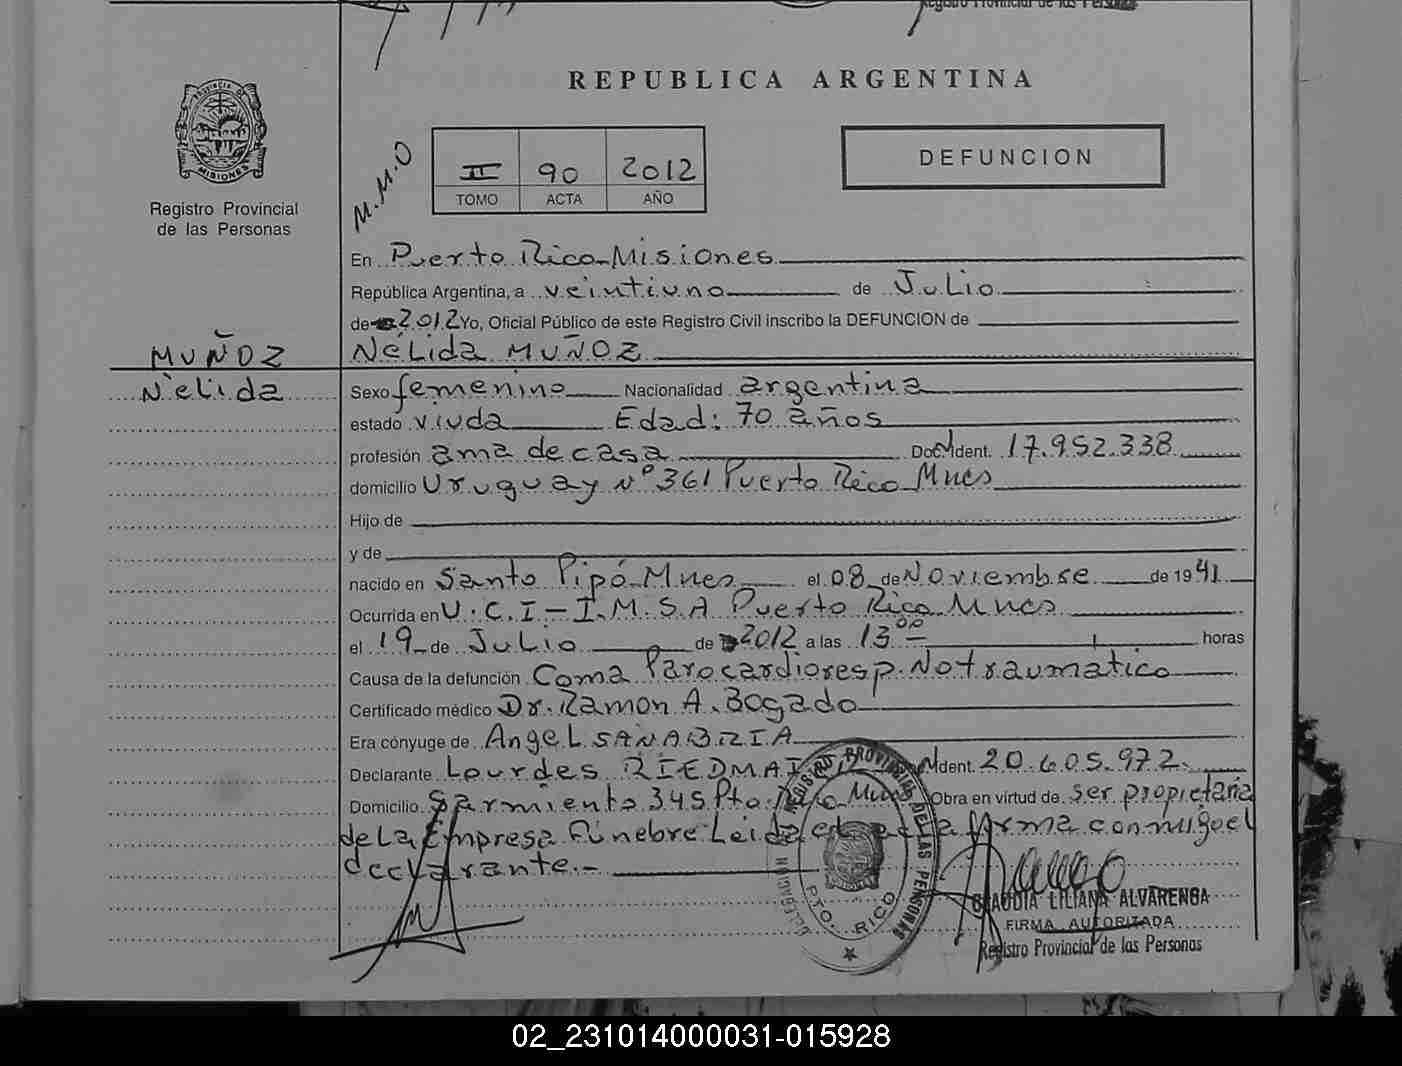 Registro Provincial de las Personas
REPUBLICA ARGENTINA
PROVINCIA DE
MISIONES
Registro Provincial
de las Personas
M.M.O
II 90 2012
TOMO ACTA AÑO
DEFUNCION
En Puerto Rico Misiones
República Argentina, a veintiuno de Julio
de 2012 Yo, Oficial Público de este Registro Civil inscribo la DEFUNCION de
MUÑOZ
Nélida
Nélida MUÑOZ
Sexo femenino Nacionalidad argentina
estado viuda Edad: 70 años
profesión ama de casa Doc. Ident. 17.952.338
domicilio Uruguay Nº 361 Puerto Rico Mnes
Hijo de
y de
nacido en Santo Pipó Mnes el 08 de Noviembre de 1941
Ocurrida en U.C.I - I.M.S.A Puerto Rico Mnes
el 19 de Julio de 2012 a las 13 00 horas
Causa de la defunción Coma Parocardioresp. No traumatico
Certificado médico Dr. Ramon A. Bogado
Era cónyuge de Angel SANABRIA
Declarante Lourdes Ident. 20.605.972
Domicilio Sarmiento 345 Pto. Rico Mnes Obra en virtud de ser propietaria
de La Empresa Fúnebre Leida el acta firma conmigo el
declarante.-
REGISTRO PROVINCIAL DE LAS PERSONAS
DELEGACION
PTO. RICO
CLAUDIA LILIANA ALVARENGA
FIRMA AUTORIZADA
Registro Provincial de las Personas
02_231014000031-015928